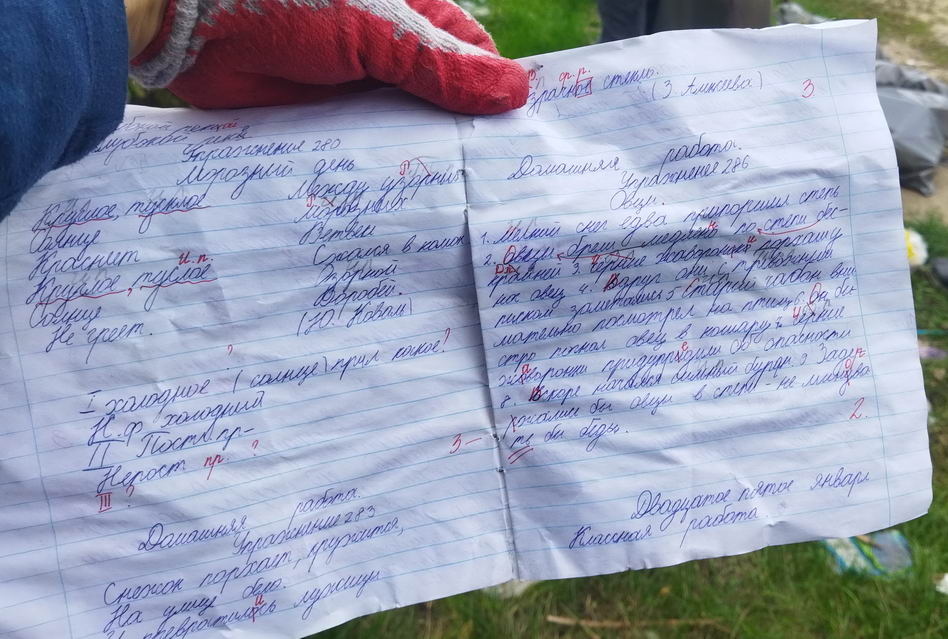 Упражнение 280
Морозный день
Круглое, тусклое
Солнце
Краснеет
Круглое, туслое
и.п.
Солнце
Не греет.
Между узорных
Морозных
Ветвей
Сжался в комок
Зоркой
Воробей.
(Ю. Коваль)
?
I холодное (солнце) прил какое?
Н.ф. холодный
II Пост. пр-
Непост пр. ?
III ?
3-
Домашняя работа.
Упражнение 283
Снежок порхает, кружится,
На улице бело.
И превратились лужицы
зрачное стекло.
(З. Алексева)
3
Домашняя работа.
Упражнение 286
Овцы.
1. Мелкий снег едва припорошил степь
2. Овцы брели медлено по степи бес-
крайней 3. Чёрные жаворонки порхали
ниж овец 4. Вдруг они с тревожным
писком заметались 5 Старший чабан вни
мательно посмотрел на птицу 6. Он бы
стро погнал овец в кошару 7. Чёрные
жаворонки придупредили об опасности
8. Вскоре начался сильный буран. 9 Задер
жались бы овцы в степи - не миновать
бы беды.
2.
Двадцатое пятое января
Классная работа.